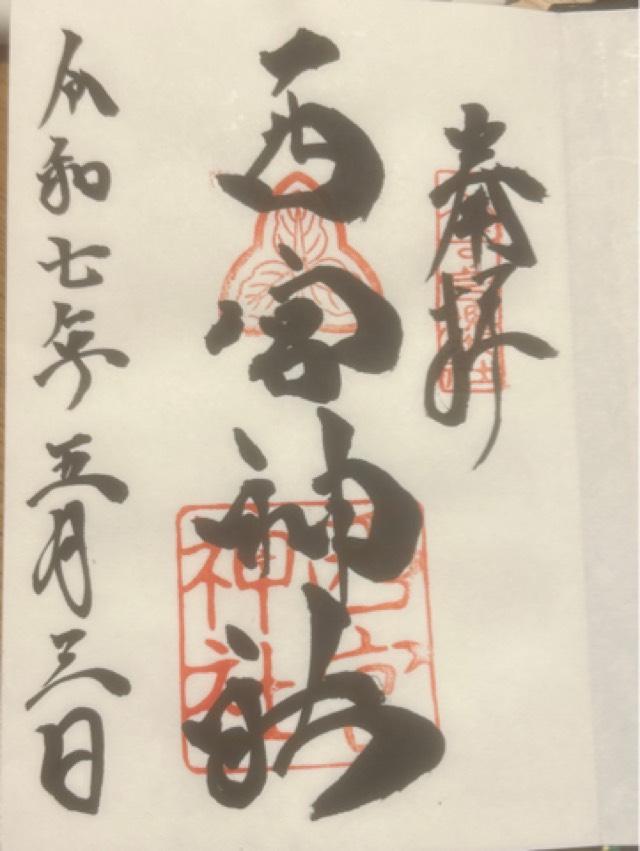 奉拝
西宮神社
西宮神社
令和七年五月三日